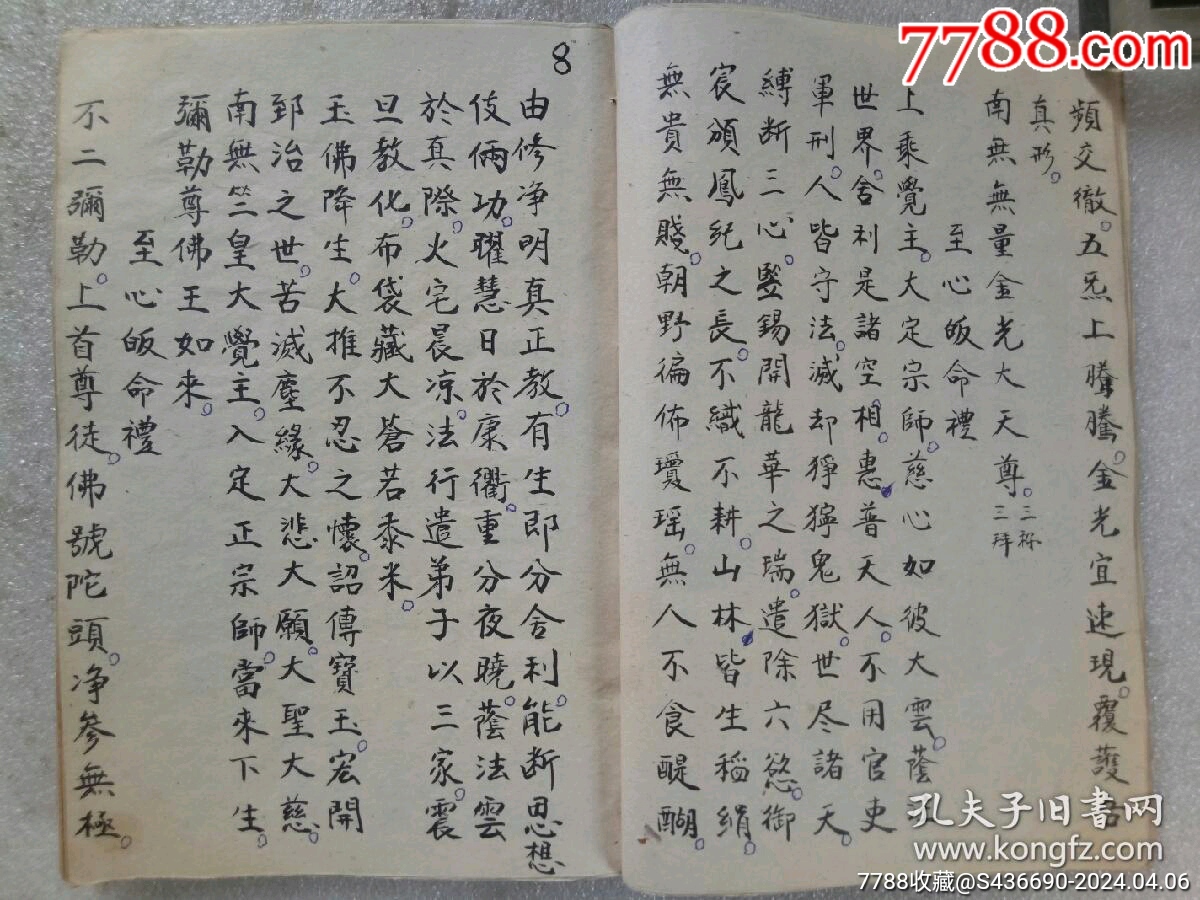 頻交徹。五炁上騰騰。金光宜速現。覆護吾
真形。
南無無量金光大天尊。三称三拜
至心皈命禮
上乘覺主。大定宗師。慈心如彼大雲。蔭
世界。舍利是諸空相。惠普天人。不用官吏
軍刑。人皆守法。滅却猙獰鬼獄。世尽諸天。
縛断三心。竪錫開龍華之瑞。遣除六慾。御
宸頒鳳紀之長。不織不耕。山林皆生稲絹。
無貴無賤。朝野徧佈瓊瑶。無人不食醍醐。
8
由修净明真正教。有生即分舍利。能断思想
伎倆功。曜慧日於康衢。重分夜曉。蔭法雲
於真際。火宅晨凉。法行遣弟子以三家。震
旦教化。布袋藏大蒼若黍米。
玉佛降生。大推不忍之懷。詔傳寶玉。宏開
郅治之世。苦滅塵緣。大悲大願。大聖大慈。
南無竺皇大覺主。入定正宗師。當來下生。
彌勒尊佛王如來。
至心皈命禮
不二彌勒。上首尊徒。佛號陀頭。净參無極。
7788.com
孔夫子旧书网
www.kongfz.com
7788收藏@S436690-2024.04.06